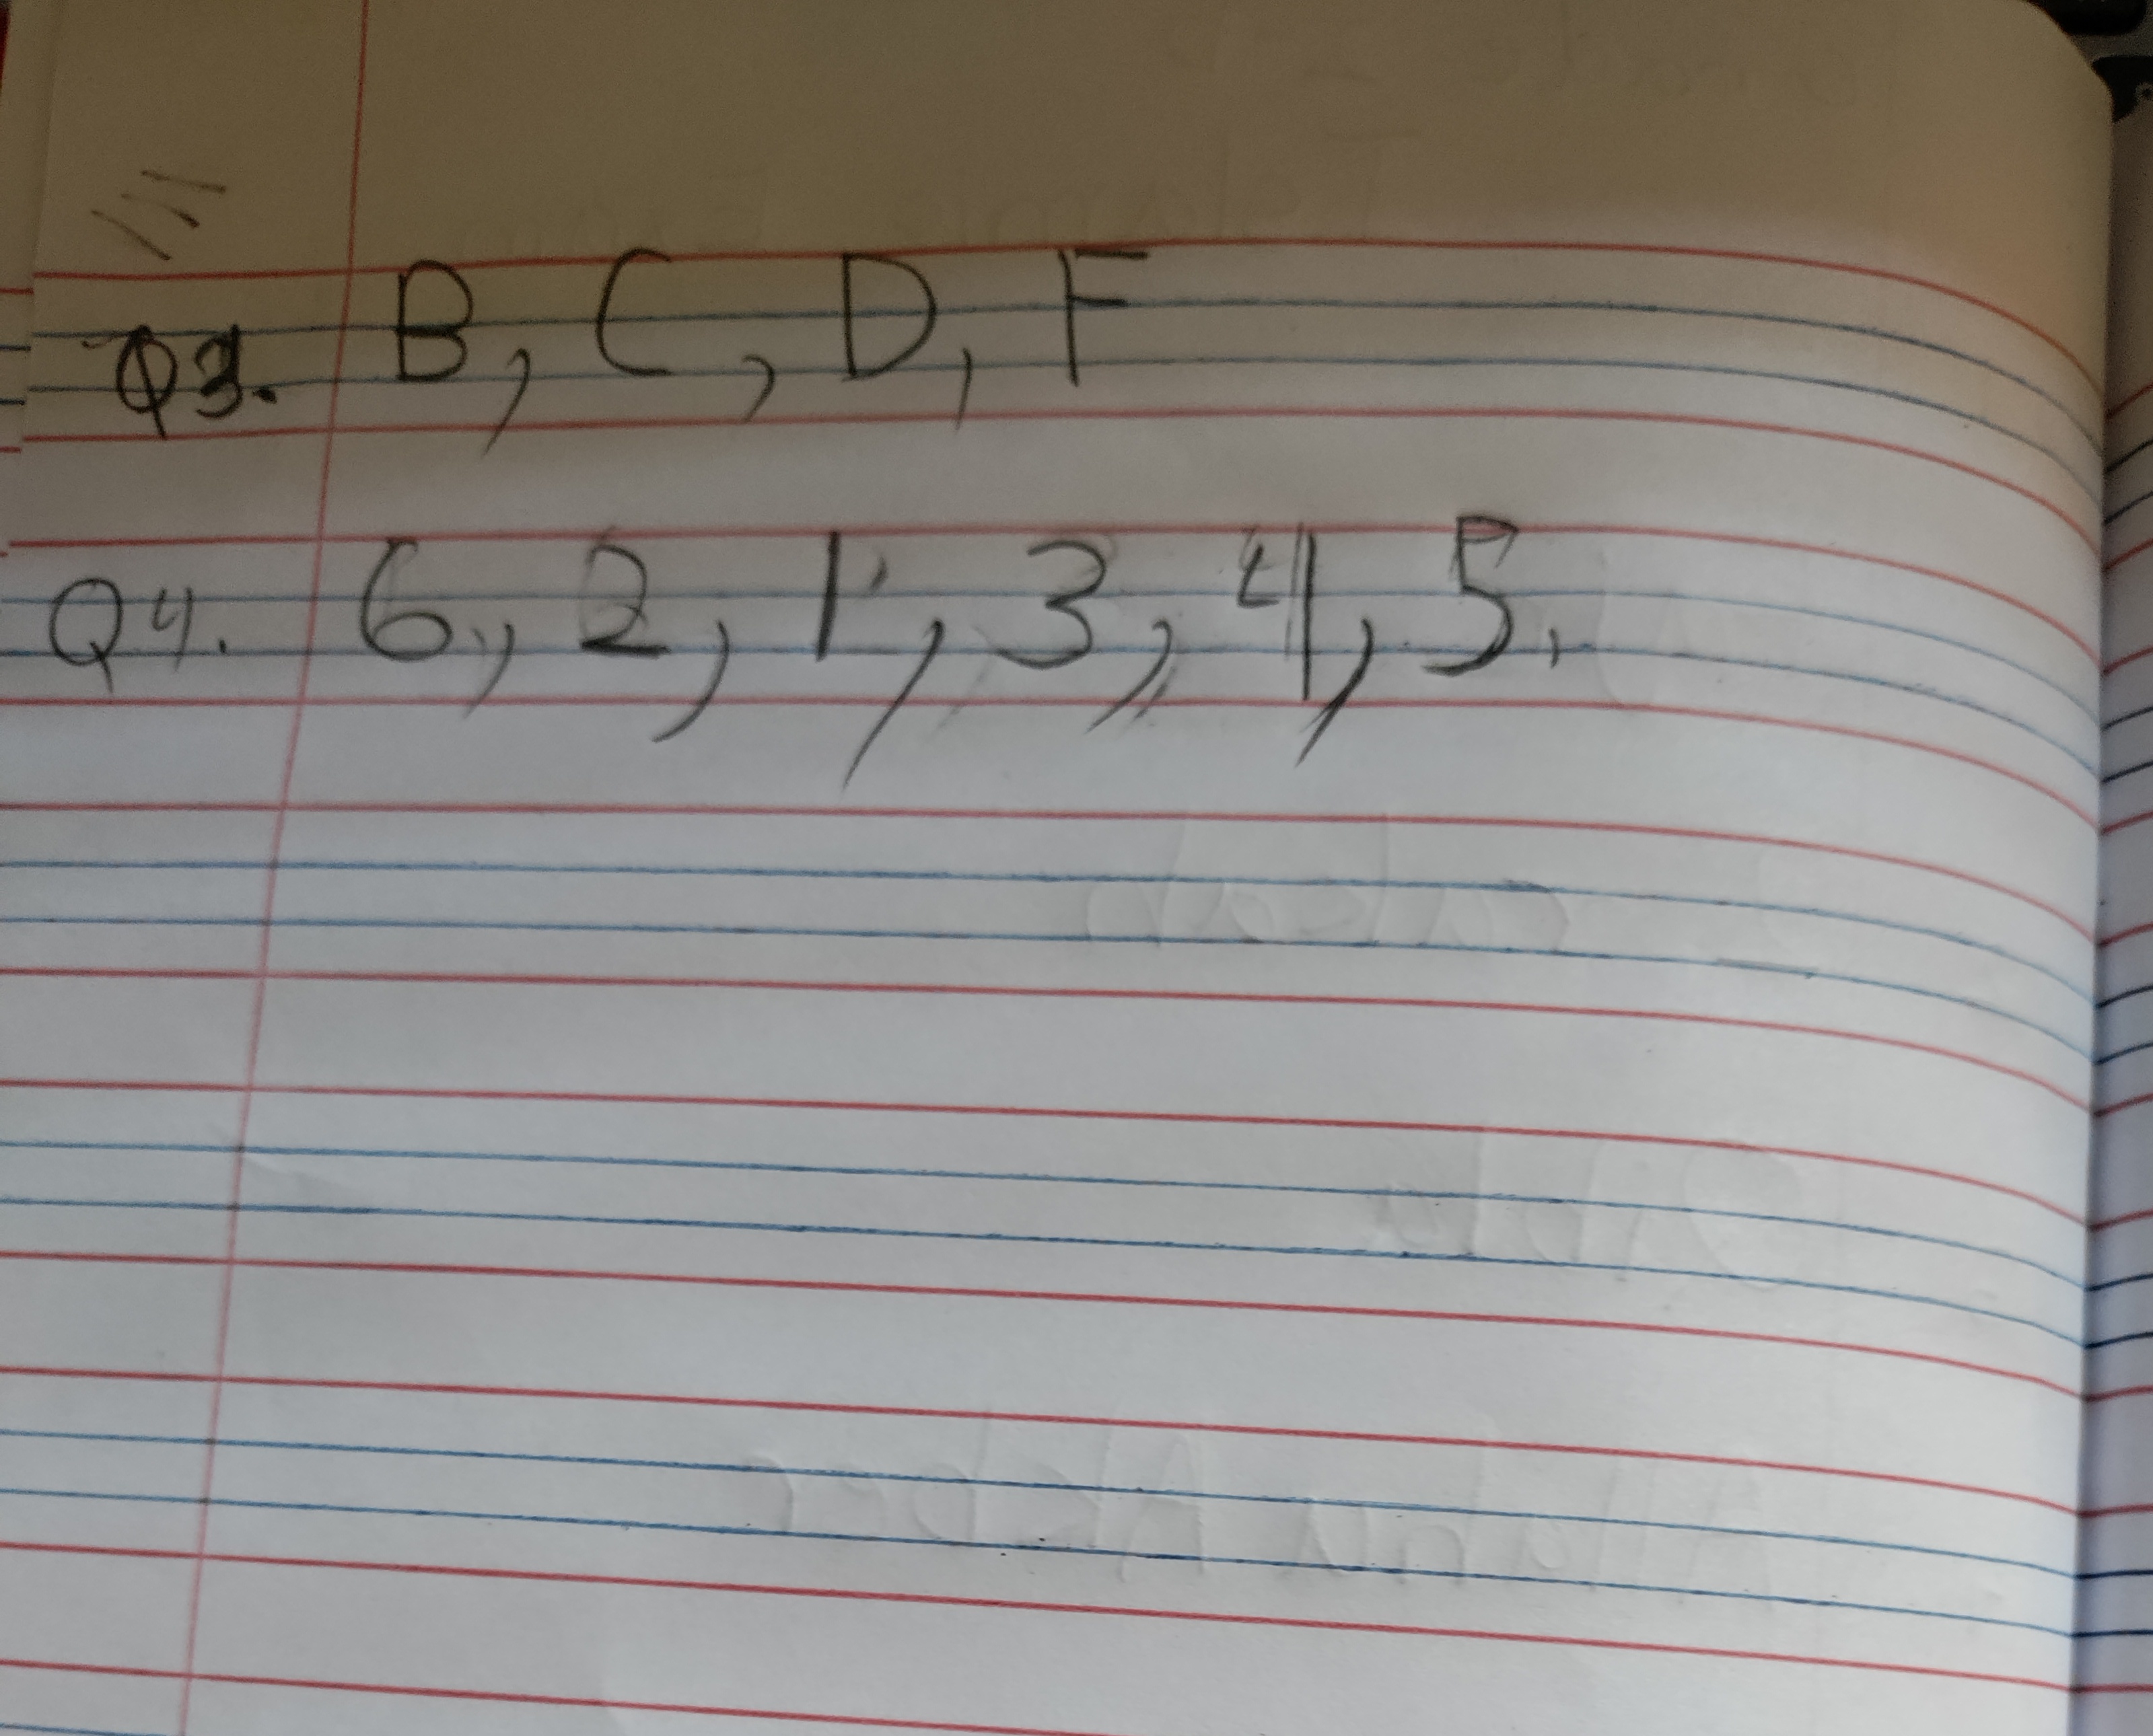 Q3. B, C, D, F
Q4. 6, 2, 1, 3, 4, 5.